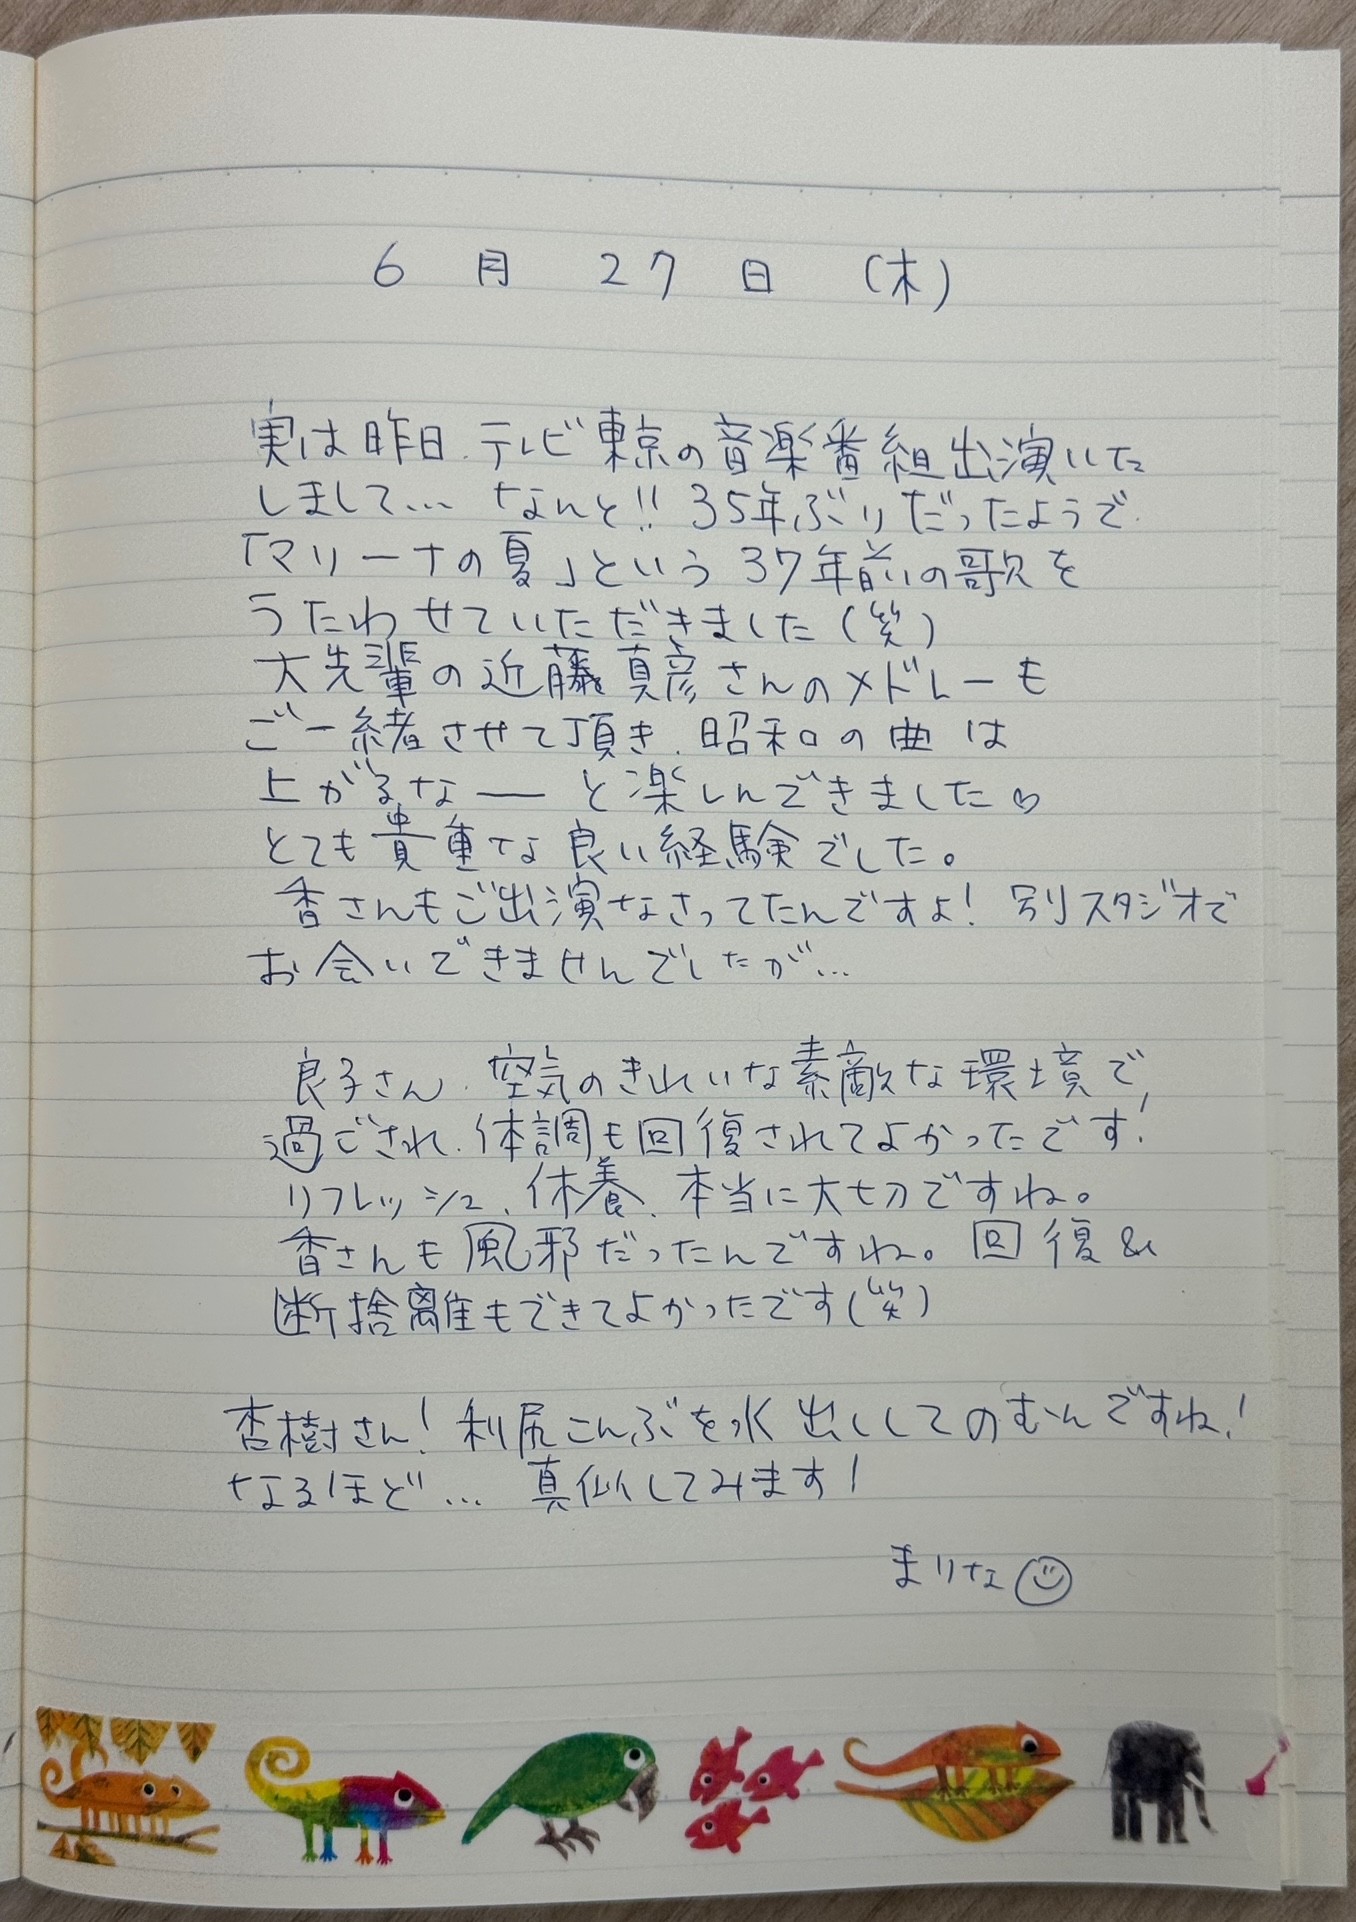 6月27日(木)
実は昨日、テレビ東京の音楽番組出演いた
しまして… なんと!! 35年ぶりだったようで
「マリーナの夏」という37年前の歌を
うたわせていただきました(笑)
大先輩の近藤真彦さんのメドレーも
ご一緒させて頂き、昭和の曲は
上がるなーと楽しんできました♡
とても貴重な良い経験でした。
香さんもご出演なさってたんですよ! 別スタジオで
お会いできませんでしたが…
良子さん、空気のきれいな素敵な環境で
過ごされ、体調も回復されてよかったです!
リフレッシュ、休養、本当に大切ですね。
香さんも風邪だったんですね。回復&
断捨離もできてよかったです(笑)
杏樹さん! 利尻こんぶを水出ししてのむんですね!
なるほど… 真似してみます!
まりな☺